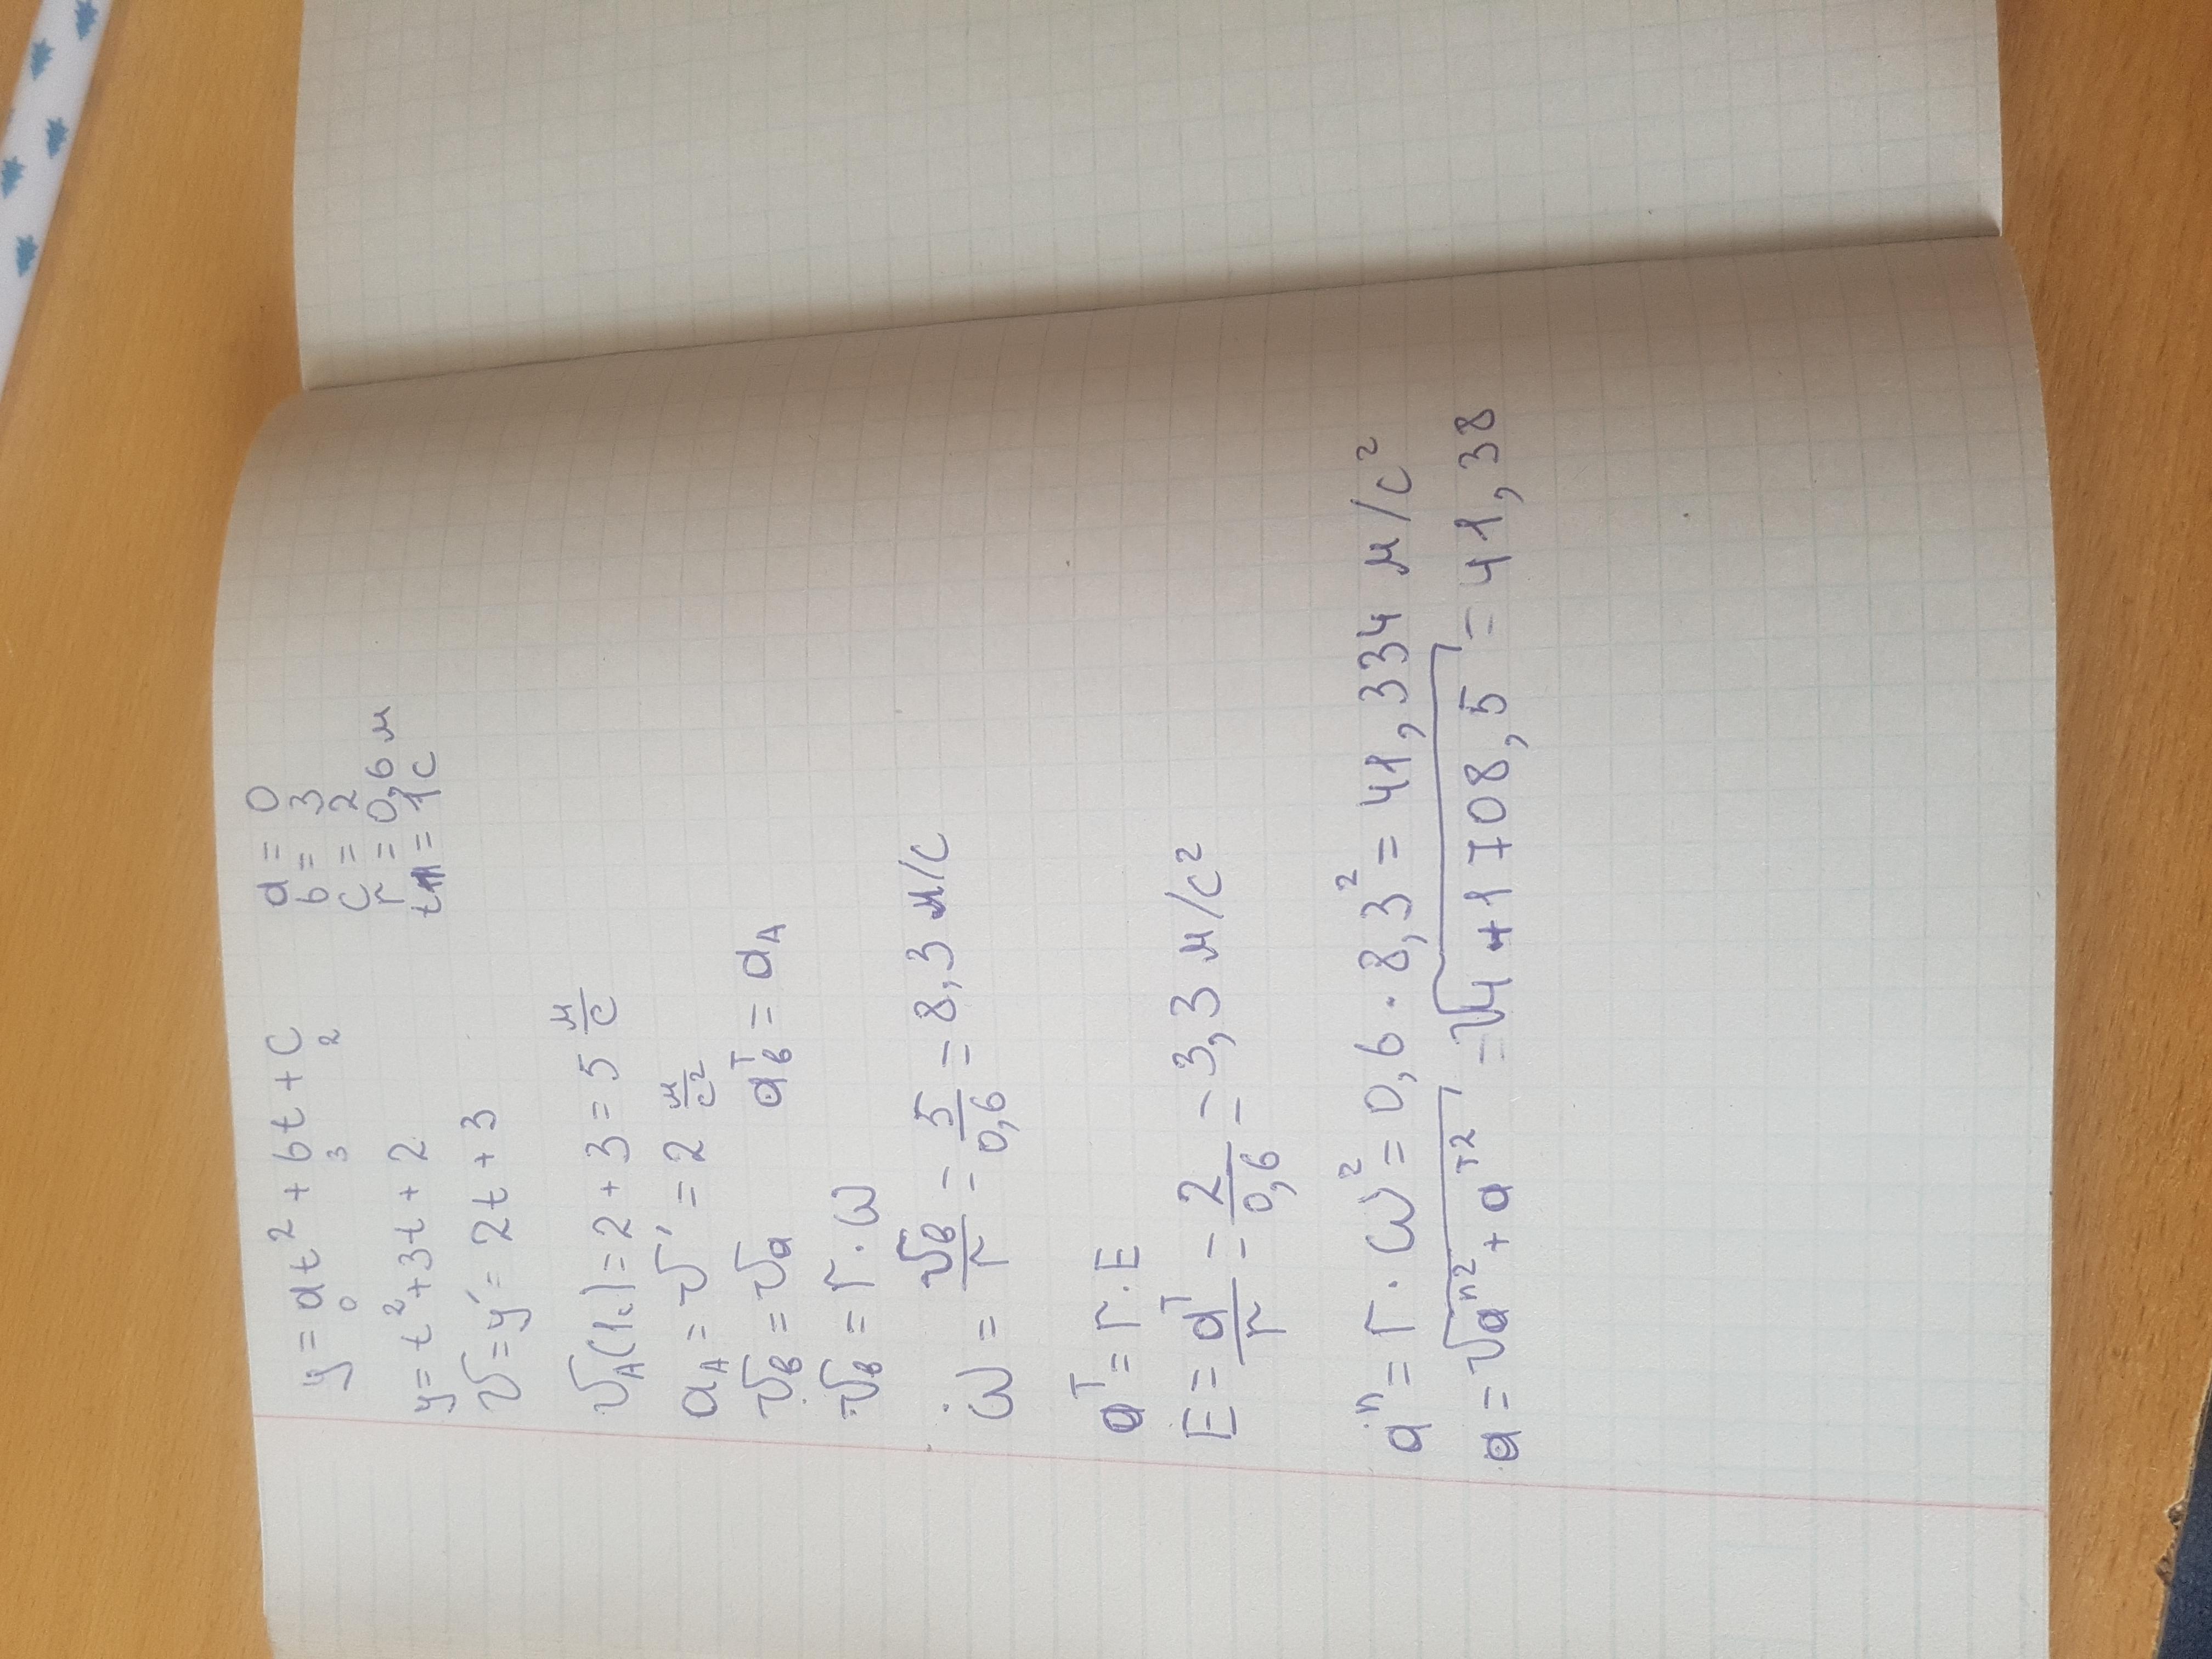 y = at² + bt + c
0 3 2
a = 0
b = 3
c = 2
r = 0,6 м
t = 1 c
y = t² + 3t + 2
v = y' = 2t + 3
v_A(1c) = 2 + 3 = 5 м/c
a_A = v' = 2 м/c²
v_B = v_a a_B^τ = a_A
v_B = r · ω
ω = v_B/r = 5/0,6 = 8,3 м/c
a^τ = r · E
E = a^τ/r = 2/0,6 = 3,3 м/c²
a^n = r · ω² = 0,6 · 8,3² = 41,334 м/c²
a = √(a^n² + a^τ²) = √(4 + 1708,5) = 41,38